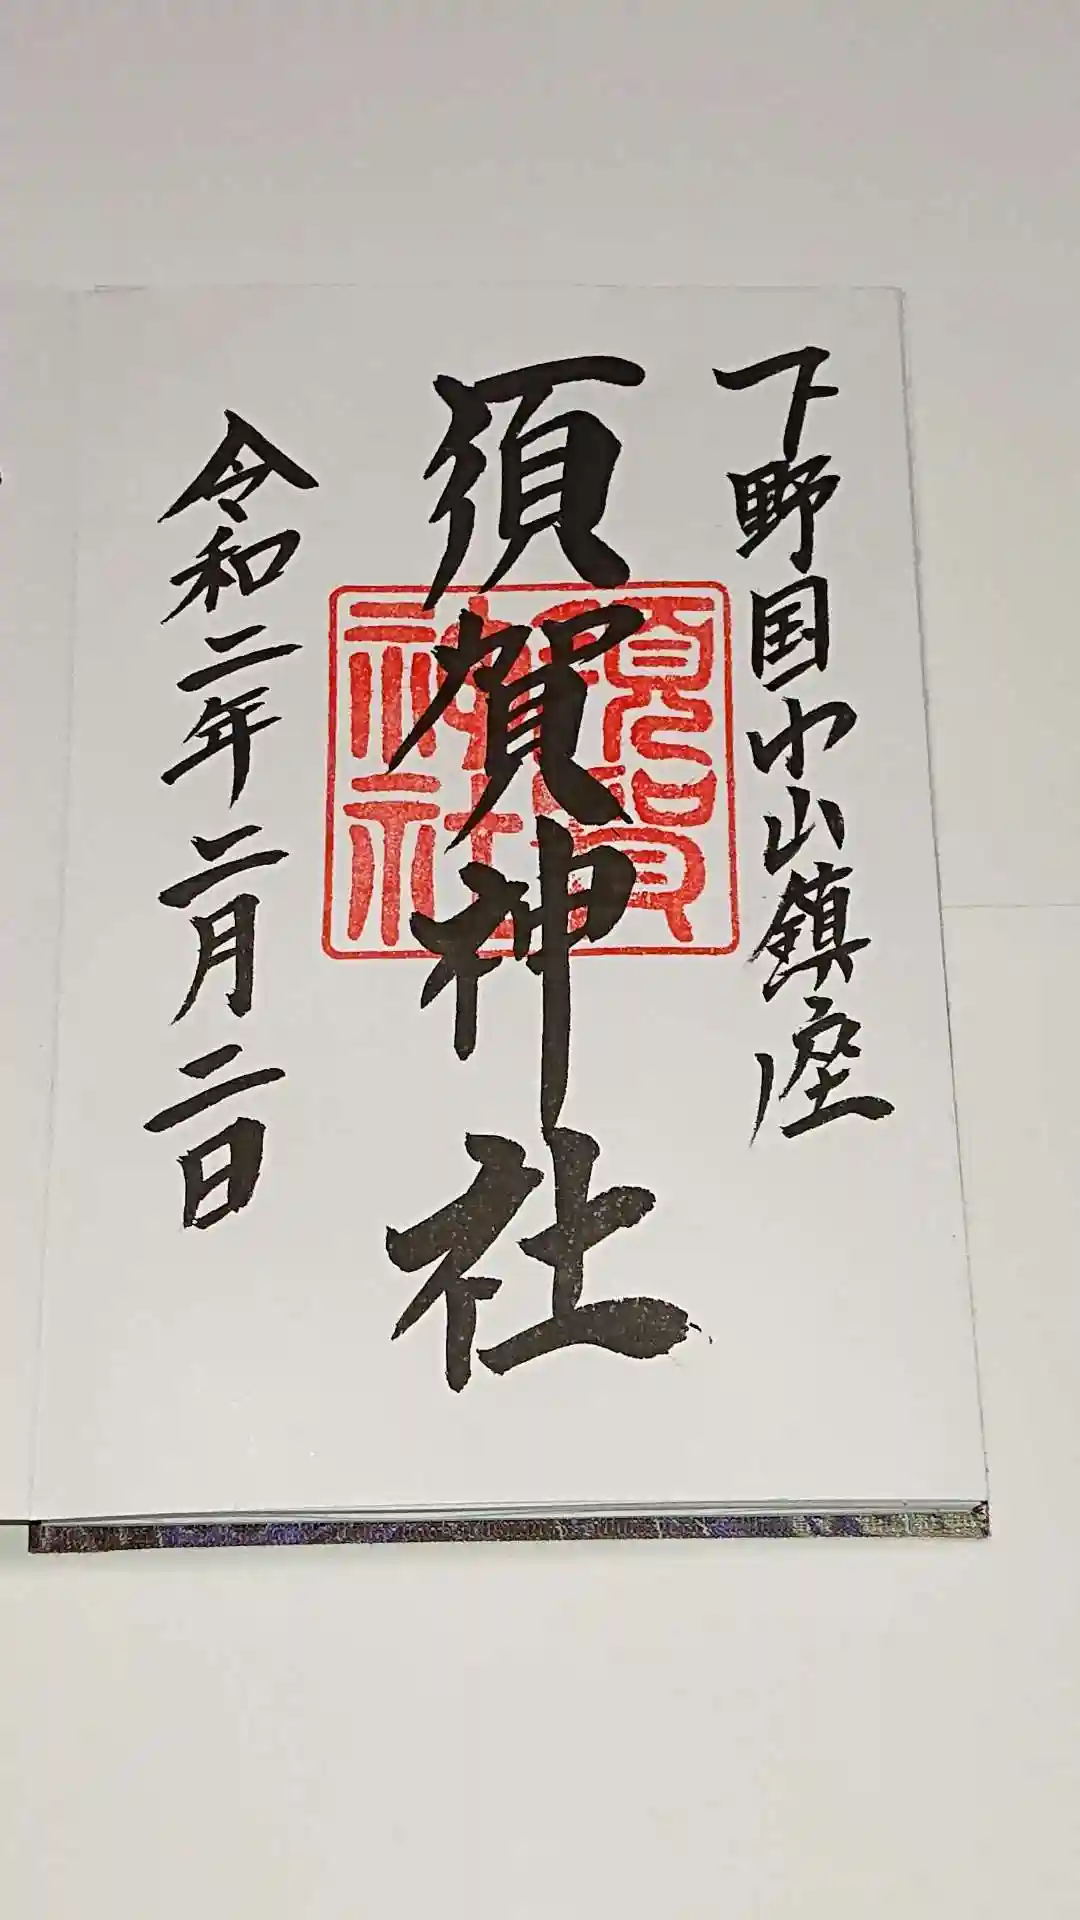 下野国小山鎮座
須賀神社
須賀
神社
令和二年二月二日